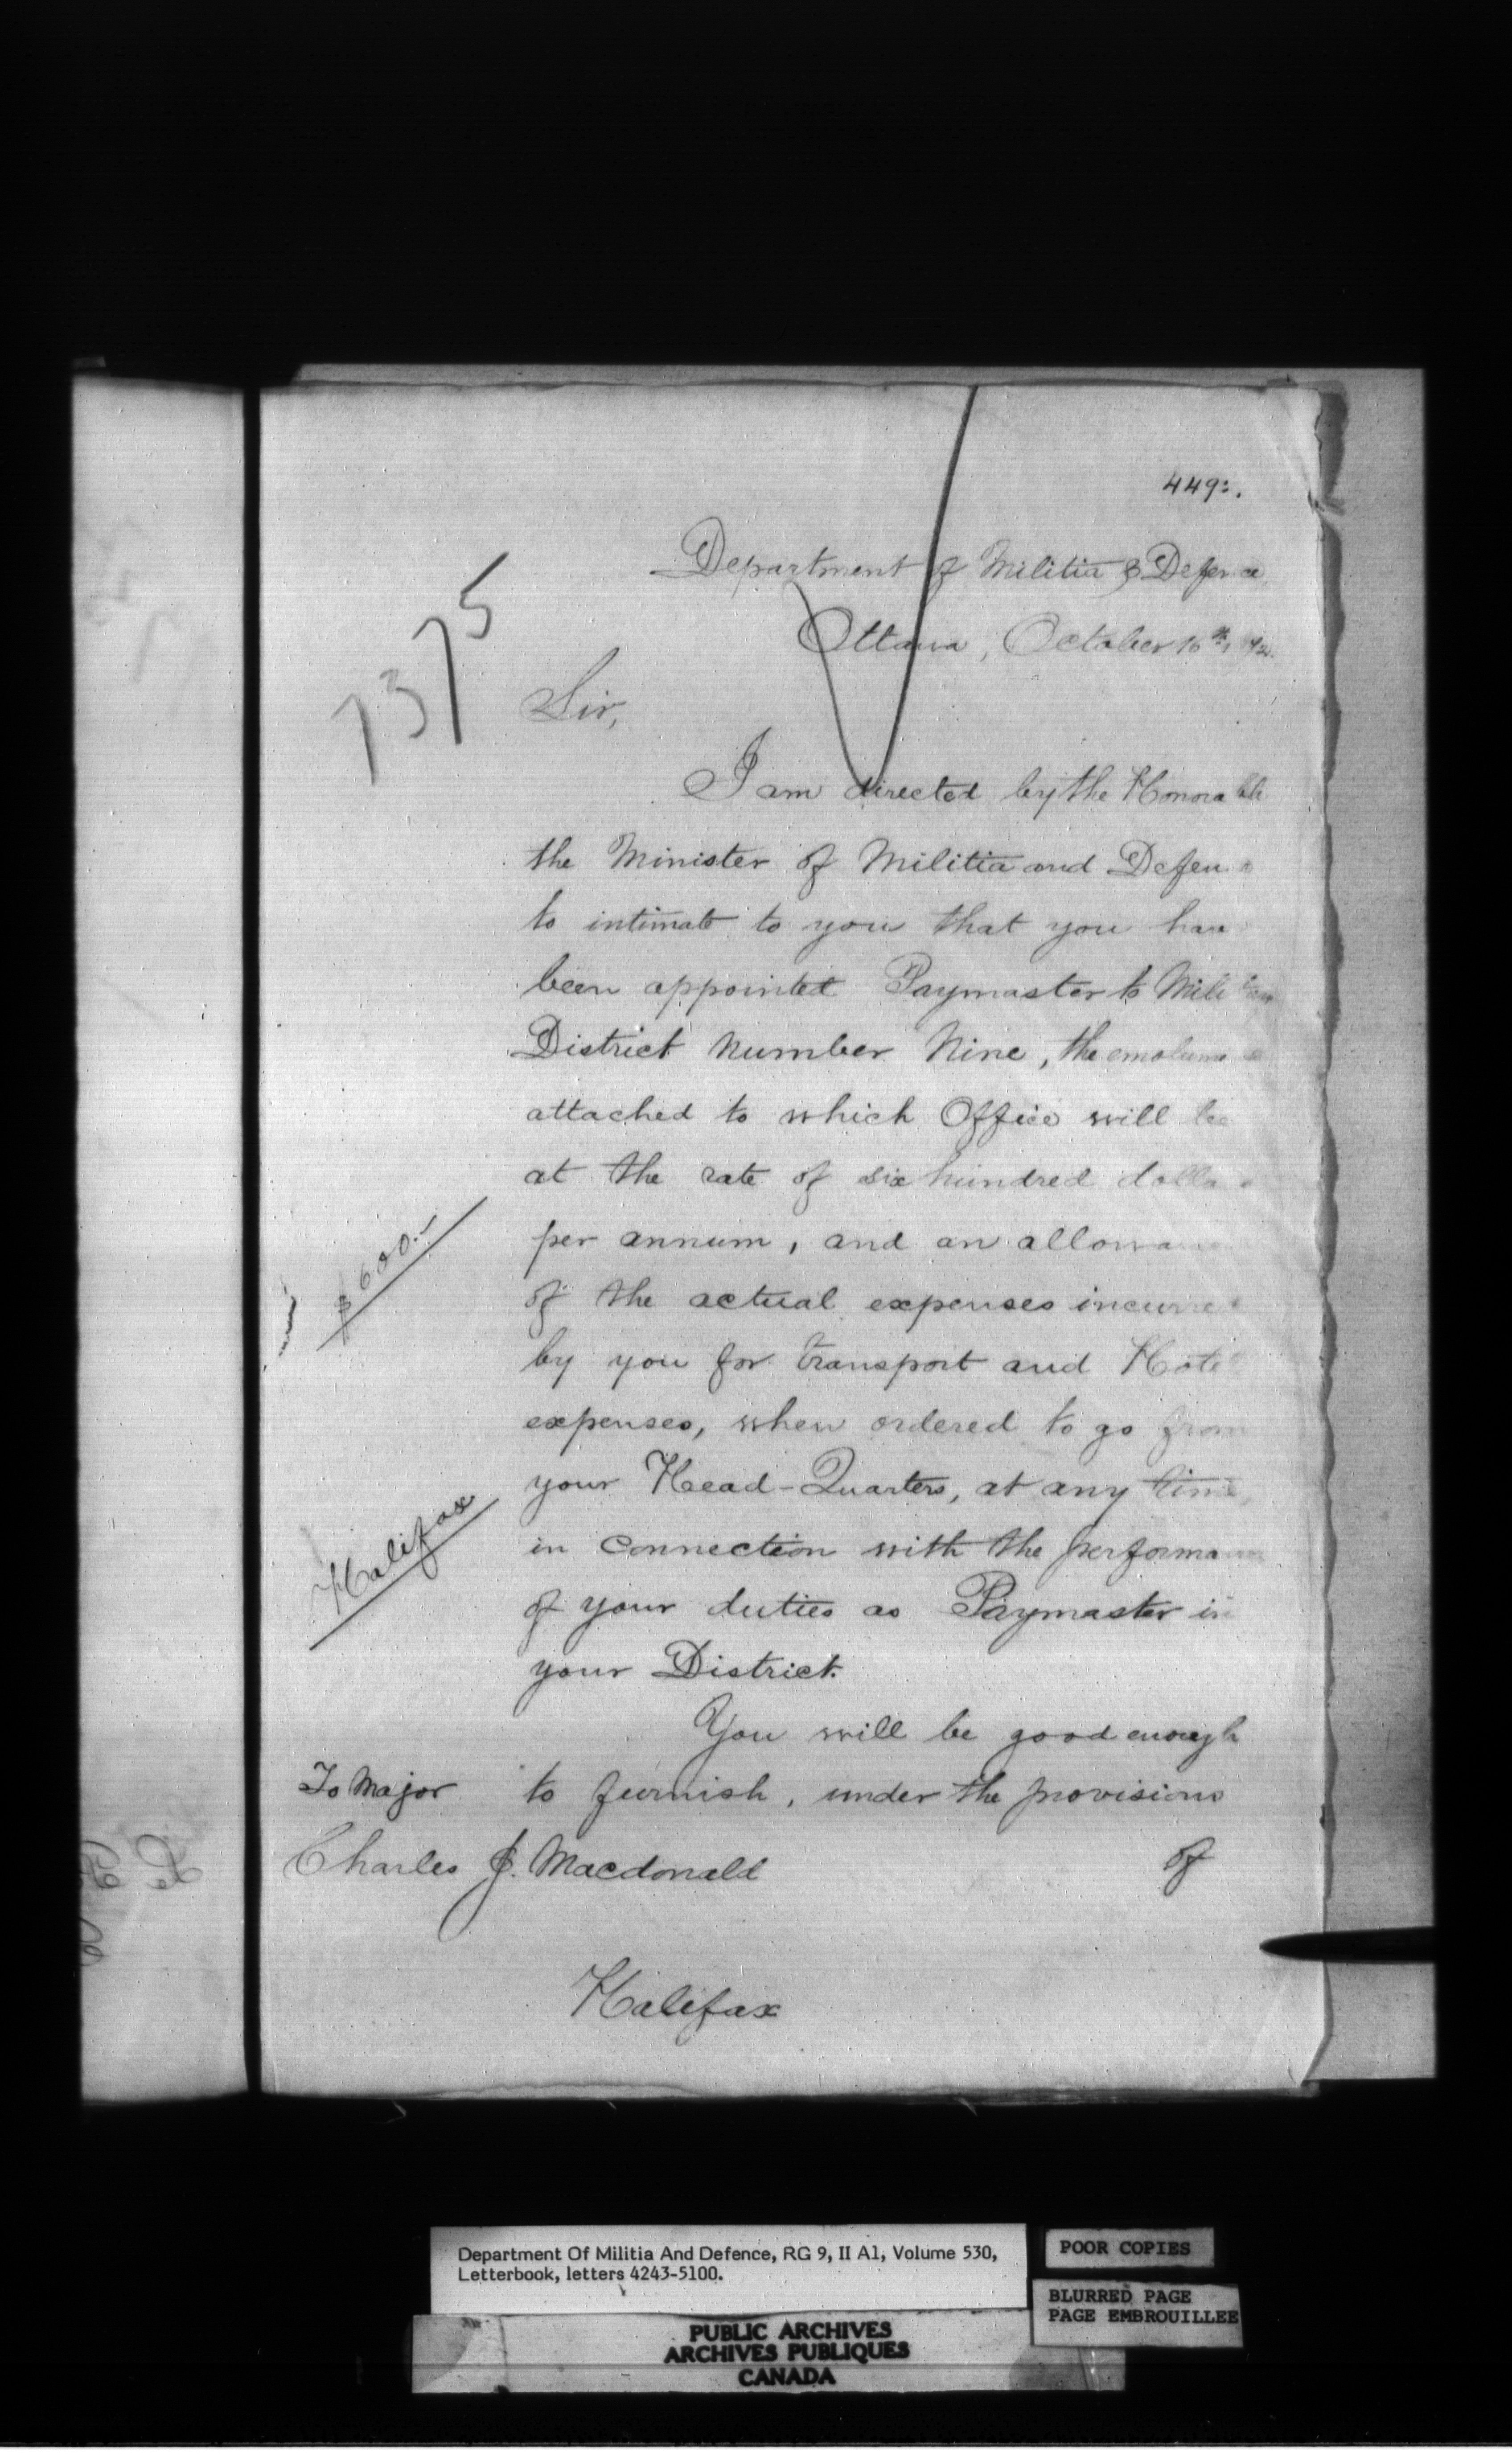 Department of Militia & Defence
Ottawa, October
7375
Sir,
I am directed by the Honorable
the Minister of Militia and Defen
to intimate to you that you have
been appointed Paymaster to Military
District Number Nine, the emolume
attached to which Office will be
at the rate of six hundred dolla
per annum, and an allowance
$600.-
of the actual expenses incurred
by you for transport and Hotel
expenses, when ordered to go from
your Head-Quarters, at any time,
Halifax
in connection with the performance
of your duties as Paymaster in
your District.
You will be good enough
To Major
to furnish, under the provisions
Charles J. Macdonald
of
Halifax
Department Of Militia And Defence, RG 9, II A1, Volume 530,
Letterbook, letters 4243-5100.
POOR COPIES
BLURRED PAGE
PAGE EMBROUILLEE
PUBLIC ARCHIVES
ARCHIVES PUBLIQUES
CANADA